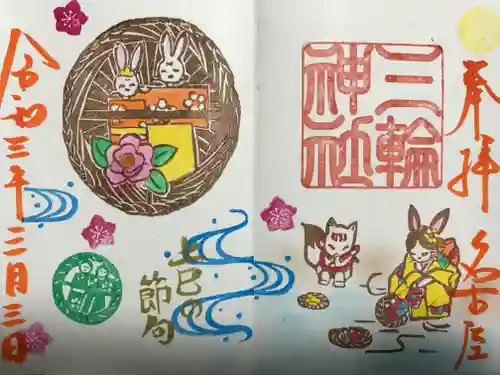 奉拝
名古屋
三輪
神社
上巳の
節句
令和三年三月三日